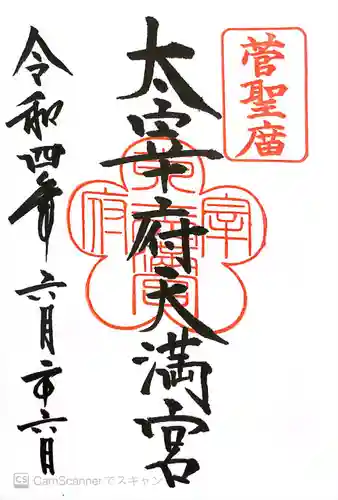 菅聖庿
太宰府天満宮
太宰府天満宮
令和四年 六月二十六日
CS CamScannerでスキャン